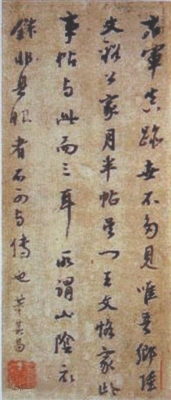 右軍真跡世不多見唯吾鄉陸
文裕公家月半帖吳门王文恪家此
事帖与此而三耳所謂山陰衣
鉢非具眼者不可与傳也董其昌